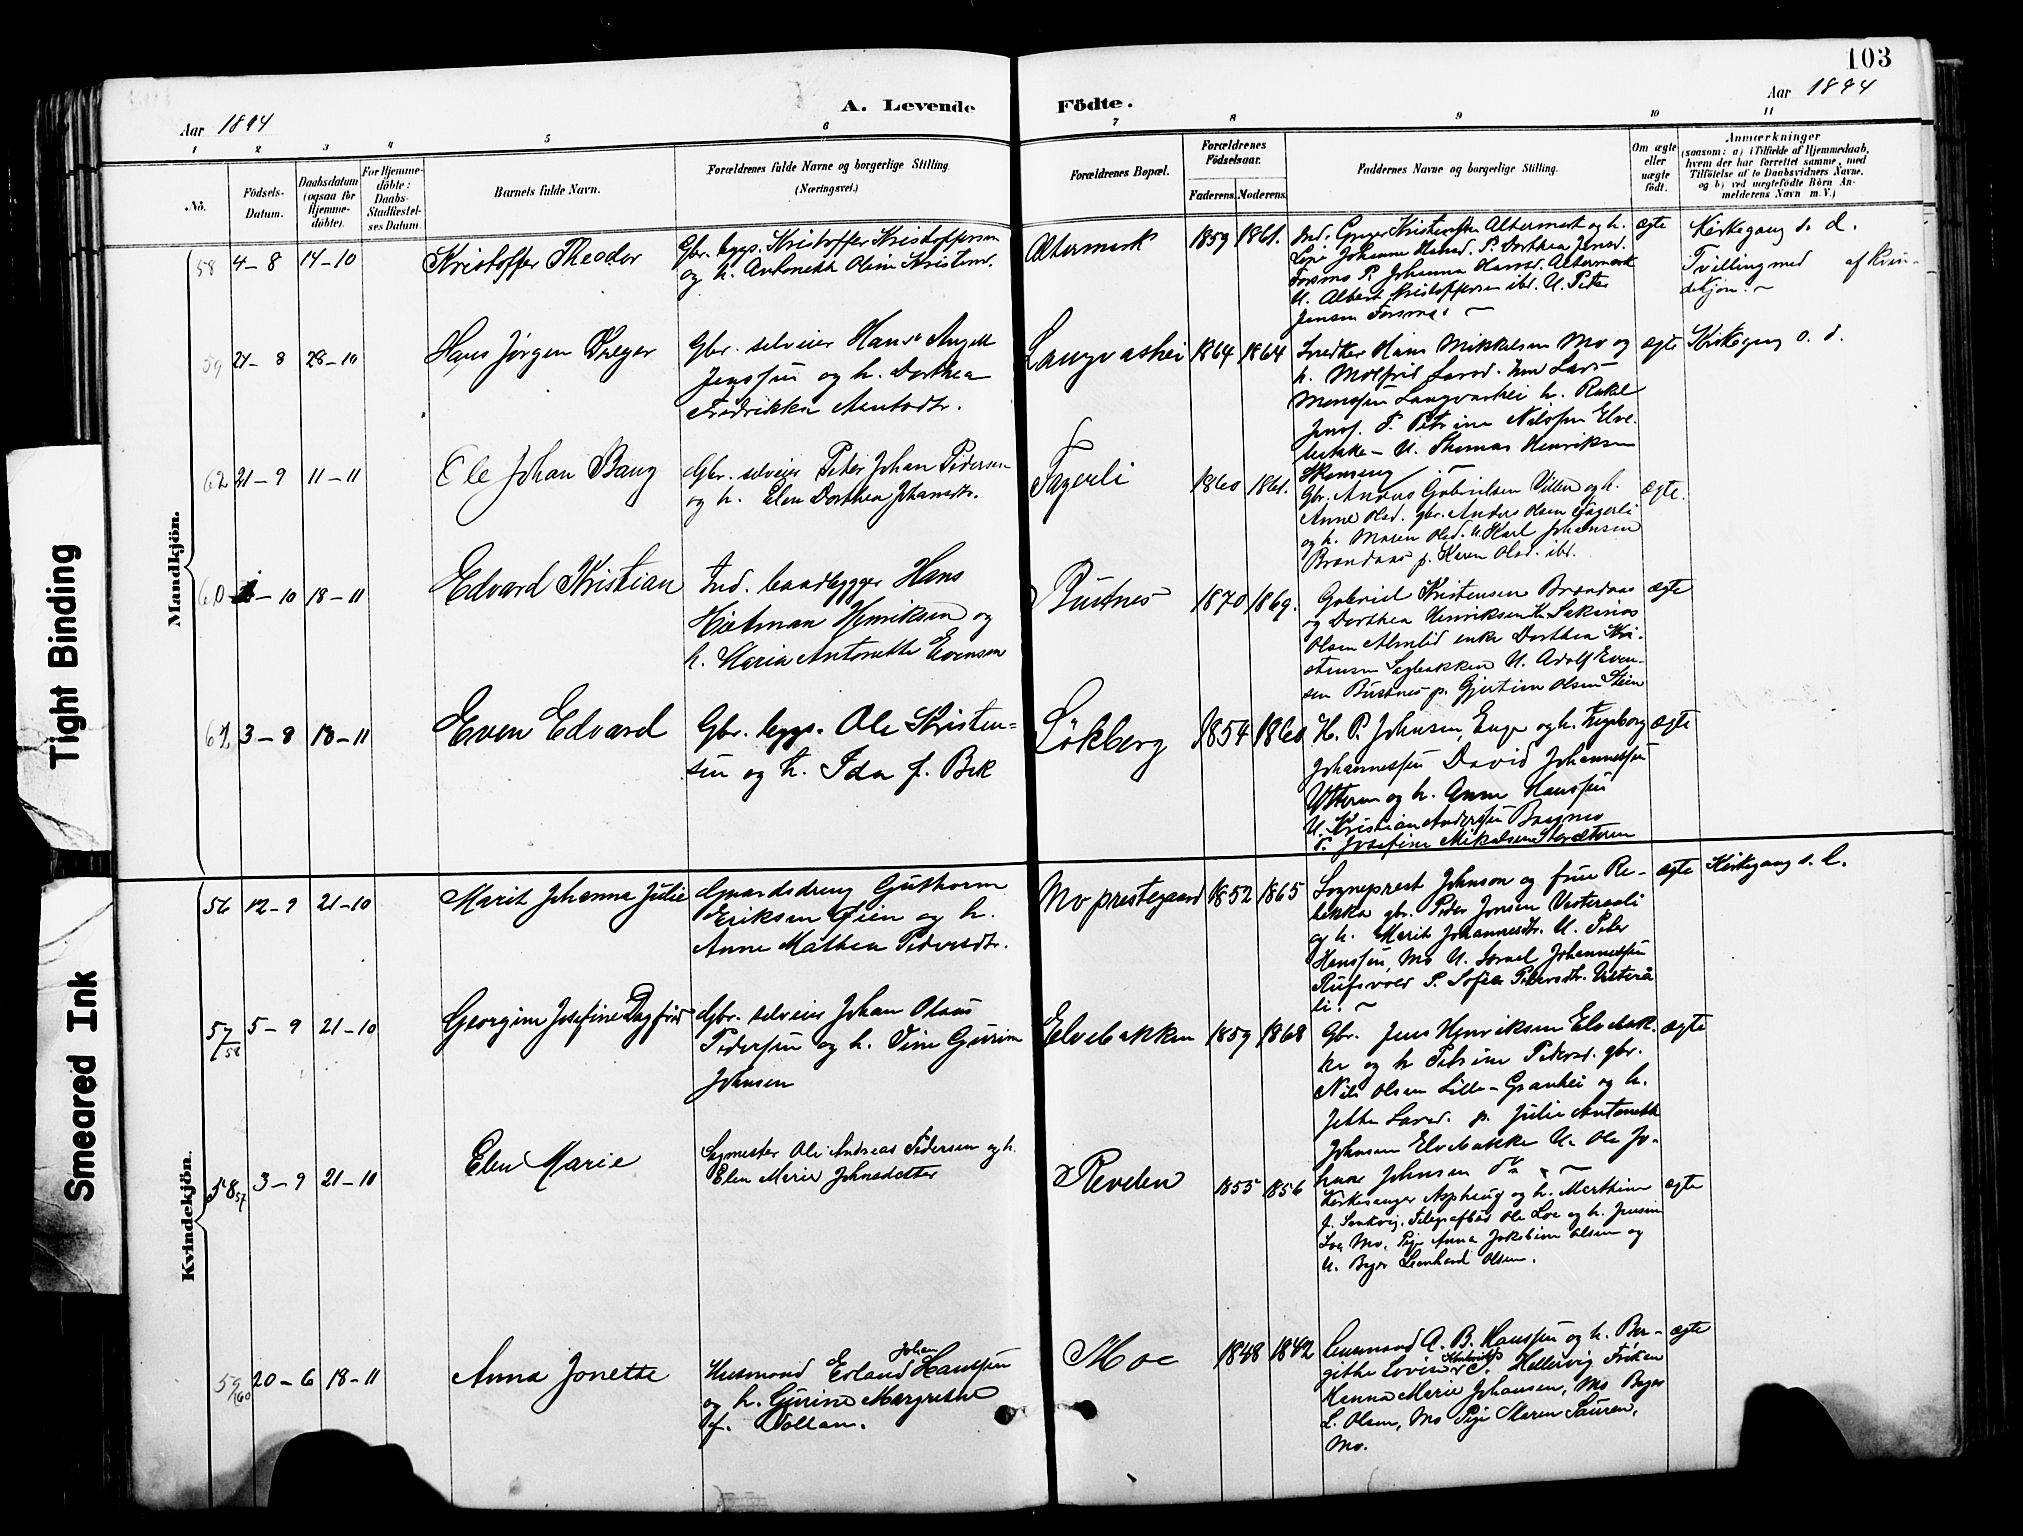 103
Aar 1894
A. Levende Födte.
Aar 1894
1 2 3 4 5 6 7 8 9 10 11
No.
Födsels-Datum.
Daabsdatum (ogsaa for Hjemme-döbte).
For Hjemme-döbte: Daabs-Stadfæstel-ses Datum.
Barnets fulde Navn.
Forældrenes fulde Navne og borgerlige Stilling.
(Næringsvei.)
Forældrenes Bopæl.
Forældrenes Födselsaar.
Faderens. Moderens.
Faddernes Navne og borgerlige Stilling.
Om ægte eller uægte födt.
Anmærkninger
(saasom: a) i Tilfælde af Hjemmedaab,
hvem der har forrettet samme, med
Tilföielse af to Daabsvidners Navne,
og b) ved uægtefödte Börn An-
melderens Navn m. V.)
Mandkjön.
58 4-8 14-10 Kristoffer Theodor
Gbr. bygs. Kristoffer Kristoffersen
og h. Antonette Oline Kristensd.
Altermark 1859 1861.
Ind. Greger Kristensen Altermark og h.
Lovise Johanne Hansd. P. Dorthea Jensd.
Forsmo P. Johanna Hansd. Altermark
U. Albert Kristoffersen ibd. U. Peter
Jensen Forsmo.
ægte
Kirkegang s. d.
Tvilling med af kvin-
dekjøn.
59 21-8 28-10 Hans Jørgen Dreyer
Gbr. selveier Hans Angell
Jenssen og h. Dorthea
Fredrikke Arntsdtr.
Langvashei 1864 1864
Snedker Hans Mikkelsen Mo og
h. Molfrid Larsd. Lars
Monssen Langvashei h. Rakel
Jensd. P. Petrine Nilssen Elve-
bakke - U. Thomas Henriksen
ægte Kirkegang s. d.
62 21-9 11-11 Ole Johan Bang
Gbr. selveier Peter Johan Pedersen
og h. Elen Dorthea Johansdtr.
Fagerli 1860 1861.
Gbr. Andreas Gabrielsen Villen og h.
Anne Olsd. gbr. Anders Olsen Fagerli
og h. Maren Olsd. U. Karl Johansen
Brandaas p. Karen Olsd. ibd.
ægte.
60 10 18-11 Edvard Kristian
Ind. baadbygger Hans
Hietman Henriksen og
h. Maria Antonette Evensen
Bustnes 1870 1869.
Gabriel Kristensen Brandaas
og Dorthea Henriksen Sakarias
Olsen Almlid enke Dorthea Kri-
stensen Sagbakken U. Adolf Even-
sen Bustnes p. Gjertine Olsen Stein
ægte
61 3-8 18-11 Even Edvard
Gbr. bygs. Ole Kristen-
sen og h. Ida f. Bek
Løkberg 1854 1860
H. P. Johnsen, Enge og h. Ingeborg
Johannessen David Johannessen
Ytteren og h. Anne Hanssen
U. Kristian Anderssen Basmo
P. Josefine Mikalsen Storæteren
ægte
Kvindekjön.
56 12-9 21-10 Marit Johanna Julie
Gaardsdreng Guthorm
Eriksen Øien og h.
Anne Mathea Pedersdtr.
Mo prestegaard 1852 1865
Sogneprest Johnson og frue Re-
bekka gbr. Peder Jonsen Vesteraali
og h. Marit Johannesdtr. U. Peter
Hanssen, Mo U. Israel Johannessen
Rufsvold P. Sofie Pedersdtr. Vesteraa-
li.
ægte Kirkegang s. d.
57/58 5-9 21-10 Georgine Josefine Dagfrid
Gbr. selveier Johan Olaus
Pederssen og h. Jine Gurine
Johnsen
Elvebakken 1859 1868
Gbr. Jens Henriksen Elvebak-
ke og h Petrine Pedersd. gbr.
Nils Olsen Lille-Granhei og h.
Jette Larsd. p. Julie Antonette
Johnsen Elvebakke U. Ole Jo-
han Johnsen
ægte
58/57 3-9 21-10 Elen Marie
Sagmester Ole Andreas Pedersen og h.
Elen Marie Johnsdatter
Revelen 1855 1856
Kirkesanger Asphaug og h. Marthine
f. Sandvig, Telegrafbud Ole Loe og h. Jensine
Loe Mo, Pige Anna Jakobine Olsen og
U. Bager Leonhard Olsen.
ægte
59/60 20-6 18-11 Anna Jonette
Husmand Erland Johan Hanssen
og h. Gurine Margrethe
f. Vollan.
Moe 1848 1842
Husmand A. B. Hanssen og h. Ber-
githe Lovise C. Hellesvig Frøken
Hanna Marie Johansen, Mo Bager
L. Olsen, Mo Pige Maren Sauren,
Mo.
ægte
Tight Binding
Smeared Ink